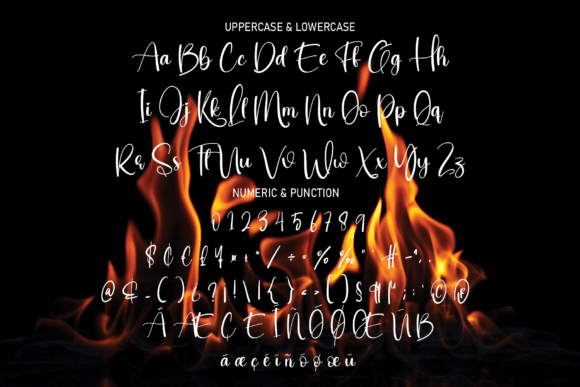 UPPERCASE & LOWERCASE
Aa Bb Cc Dd Ee Ff Gg Hh
Ii Jj Kk Ll Mm Nn Oo Pp Qq
Rr Ss Tt Uu Vv Ww Xx Yy Zz
NUMERIC & PUNCTION
0 1 2 3 4 5 6 7 8 9
$ ¢ £ ¥ ¤ + * / ÷ = % ‰ " ' # - ^ . ,
@ & _ ( ) ¿ ? ¡ ! \ | { } < > [ ] § ¶ ; : ' © ®
Á Æ Ç É Í Ñ Ó Ø Œ Ú ß
á æ ç é í ñ ó ø œ ú